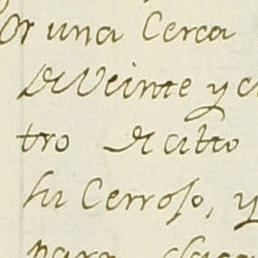 or una Cerca
de Veinte y c
tro de alto
su Cerroso, y
para